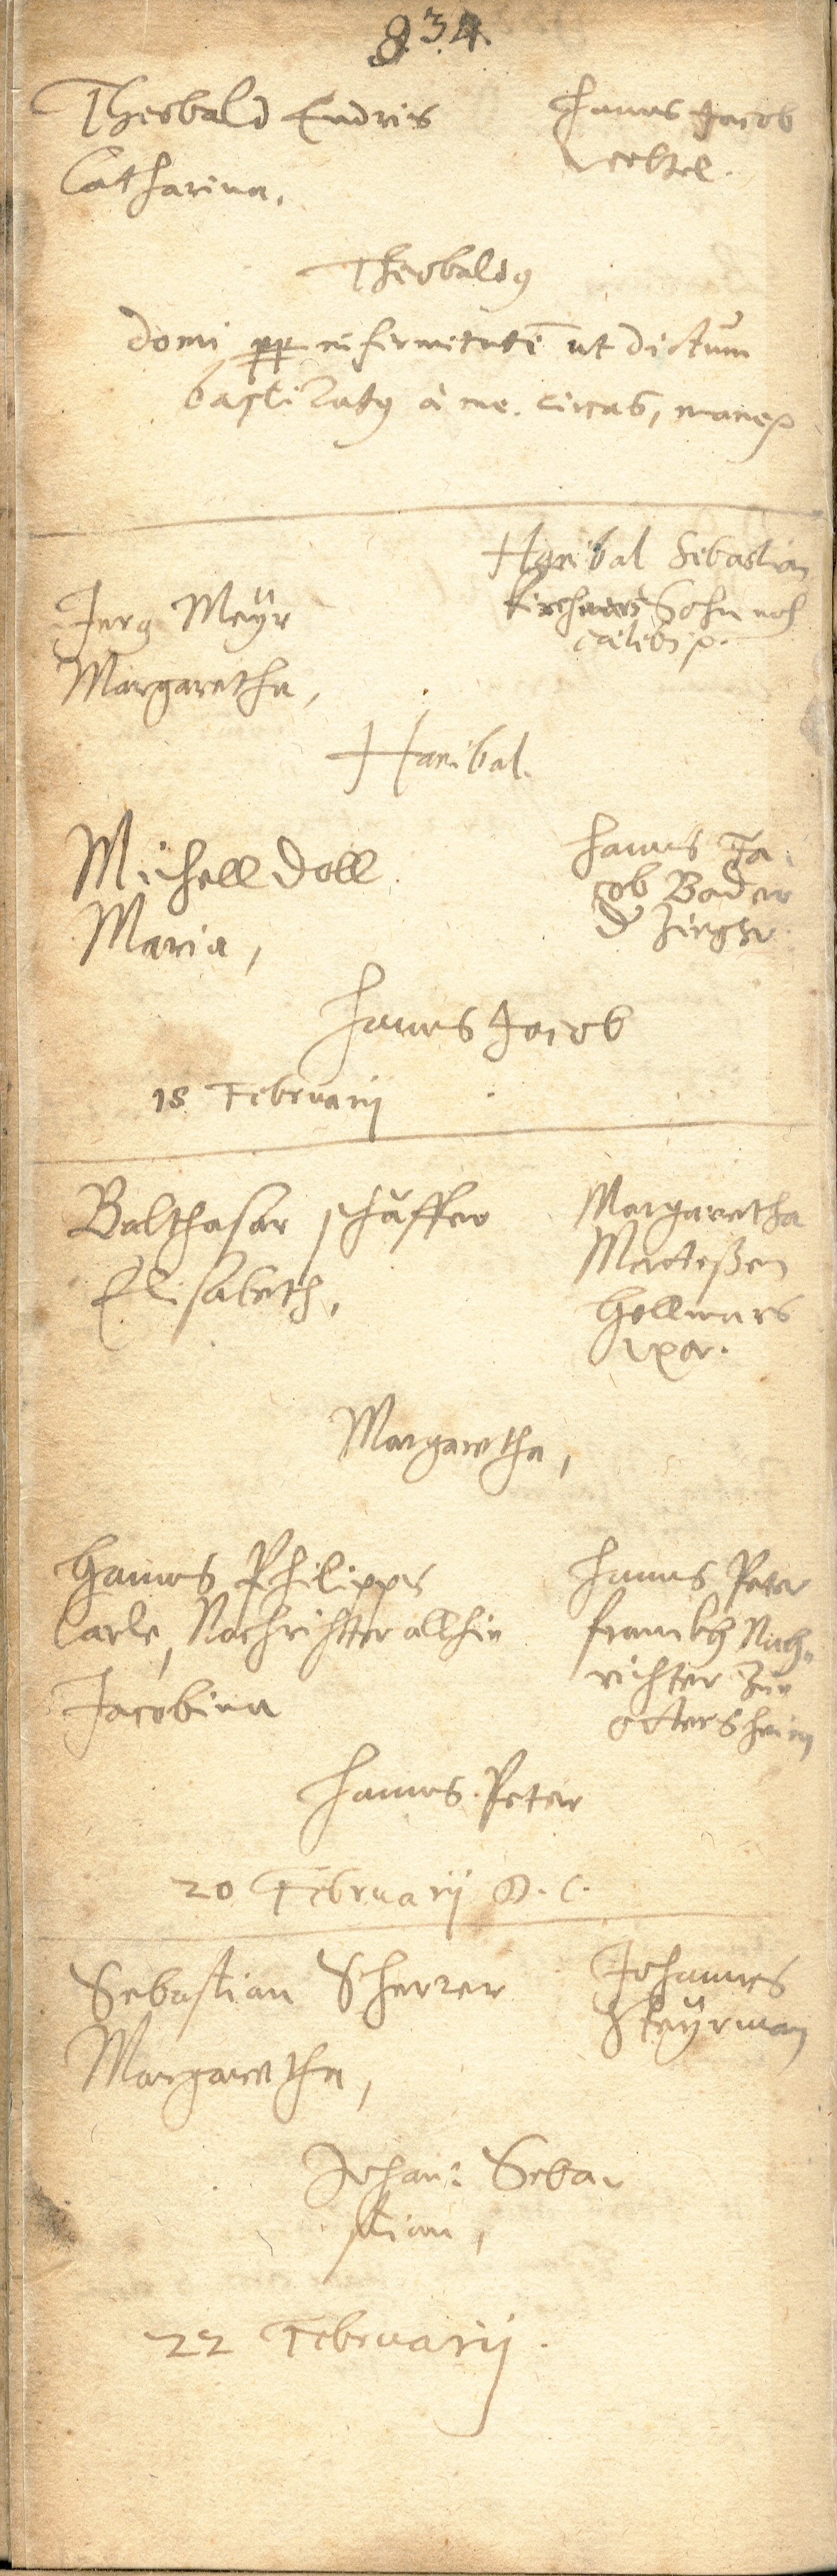 834.
Theobald Endris
Catharina,
Hanns Jacob
Theobaldꝰ
domi ꝓꝑ infirmitatē ut dictum
baptizatꝰ à me. circa 6, mane
Hanibal Sebastian
Kirchners Sohn noch
cælebs
Jerg Meÿr
Margaretha,
Hanibal.
Michell Doll
Maria,
Hanns Ja-
cob Bader
d Ziegler
Hanns Jacob
18 Februarij
Balthasar schäffer
Elisabeth,
Margaretha
Hollmars
uxor.
Margaretha,
Hanns Philipps
Carle, Nachrichtter allhie
Jacobina
Hanns Peter
Nach-
richter zu
ottersheim
Hanns Peter
20 Februarij D. C.
Sebastian Scherrer
Margaretha,
Johannes
Steÿrman
Johan: Seba-
stian,
22 Februarij.